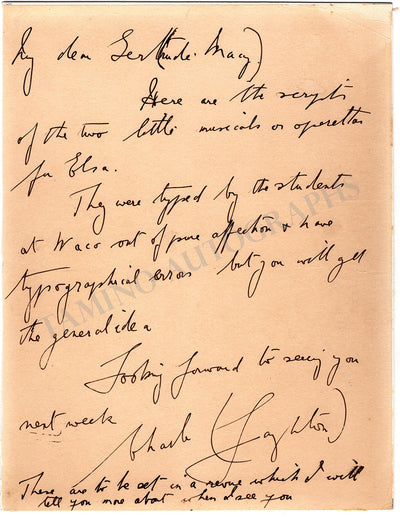 My dear Gertrude Macy)
Here are the scripts
of the two little musicals or operettas
for Elsa.
They were typed by the students
at Waco out of pure affection & have
typographical errors but you will get
the general idea
Looking forward to seeing you
next week
Charles (Laughton)
These are to be set in a revue which I will
tell you more about when I see you
TAMINO AUTOGRAPHS